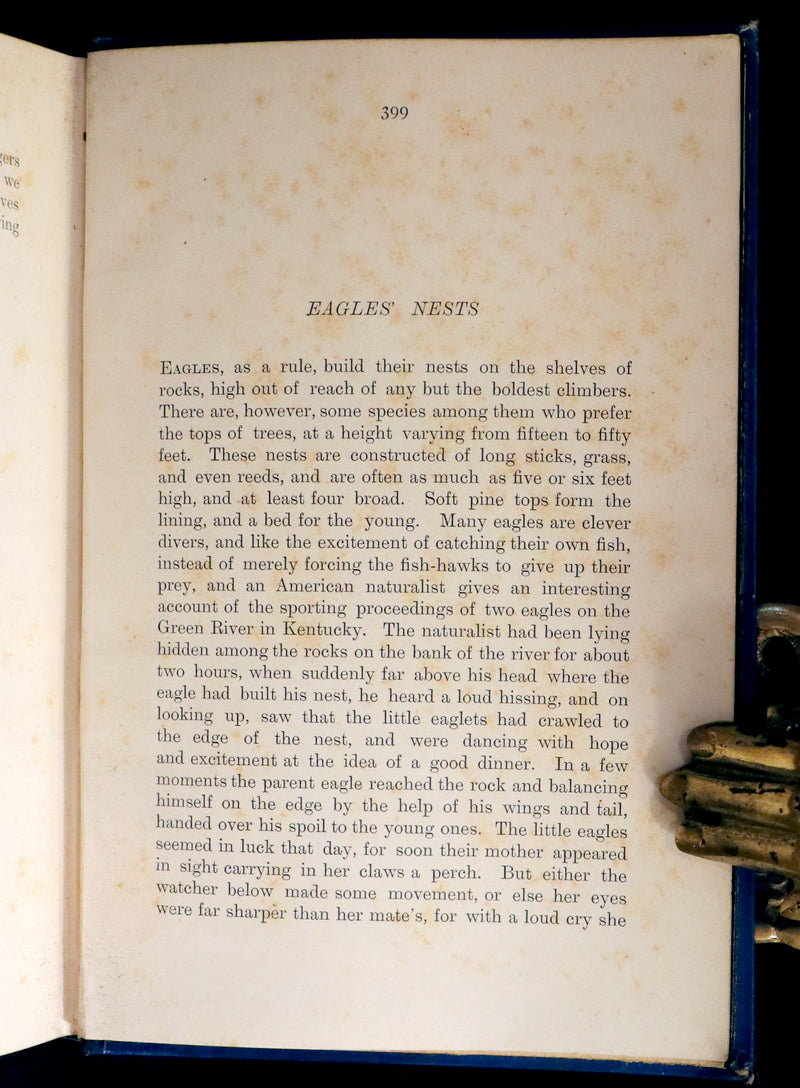 gers
we
ves
ing
399
EAGLES' NESTS
EAGLES, as a rule, build their nests on the shelves of
rocks, high out of reach of any but the boldest climbers.
There are, however, some species among them who prefer
the tops of trees, at a height varying from fifteen to fifty
feet. These nests are constructed of long sticks, grass,
and even reeds, and are often as much as five or six feet
high, and at least four broad. Soft pine tops form the
lining, and a bed for the young. Many eagles are clever
divers, and like the excitement of catching their own fish,
instead of merely forcing the fish-hawks to give up their
prey, and an American naturalist gives an interesting
account of the sporting proceedings of two eagles on the
Green River in Kentucky. The naturalist had been lying
hidden among the rocks on the bank of the river for about
two hours, when suddenly far above his head where the
eagle had built his nest, he heard a loud hissing, and on
looking up, saw that the little eaglets had crawled to
the edge of the nest, and were dancing with hope
and excitement at the idea of a good dinner. In a few
moments the parent eagle reached the rock and balancing
himself on the edge by the help of his wings and tail,
handed over his spoil to the young ones. The little eagles
seemed in luck that day, for soon their mother appeared
in sight carrying in her claws a perch. But either the
watcher below made some movement, or else her eyes
were far sharper than her mate's, for with a loud cry she